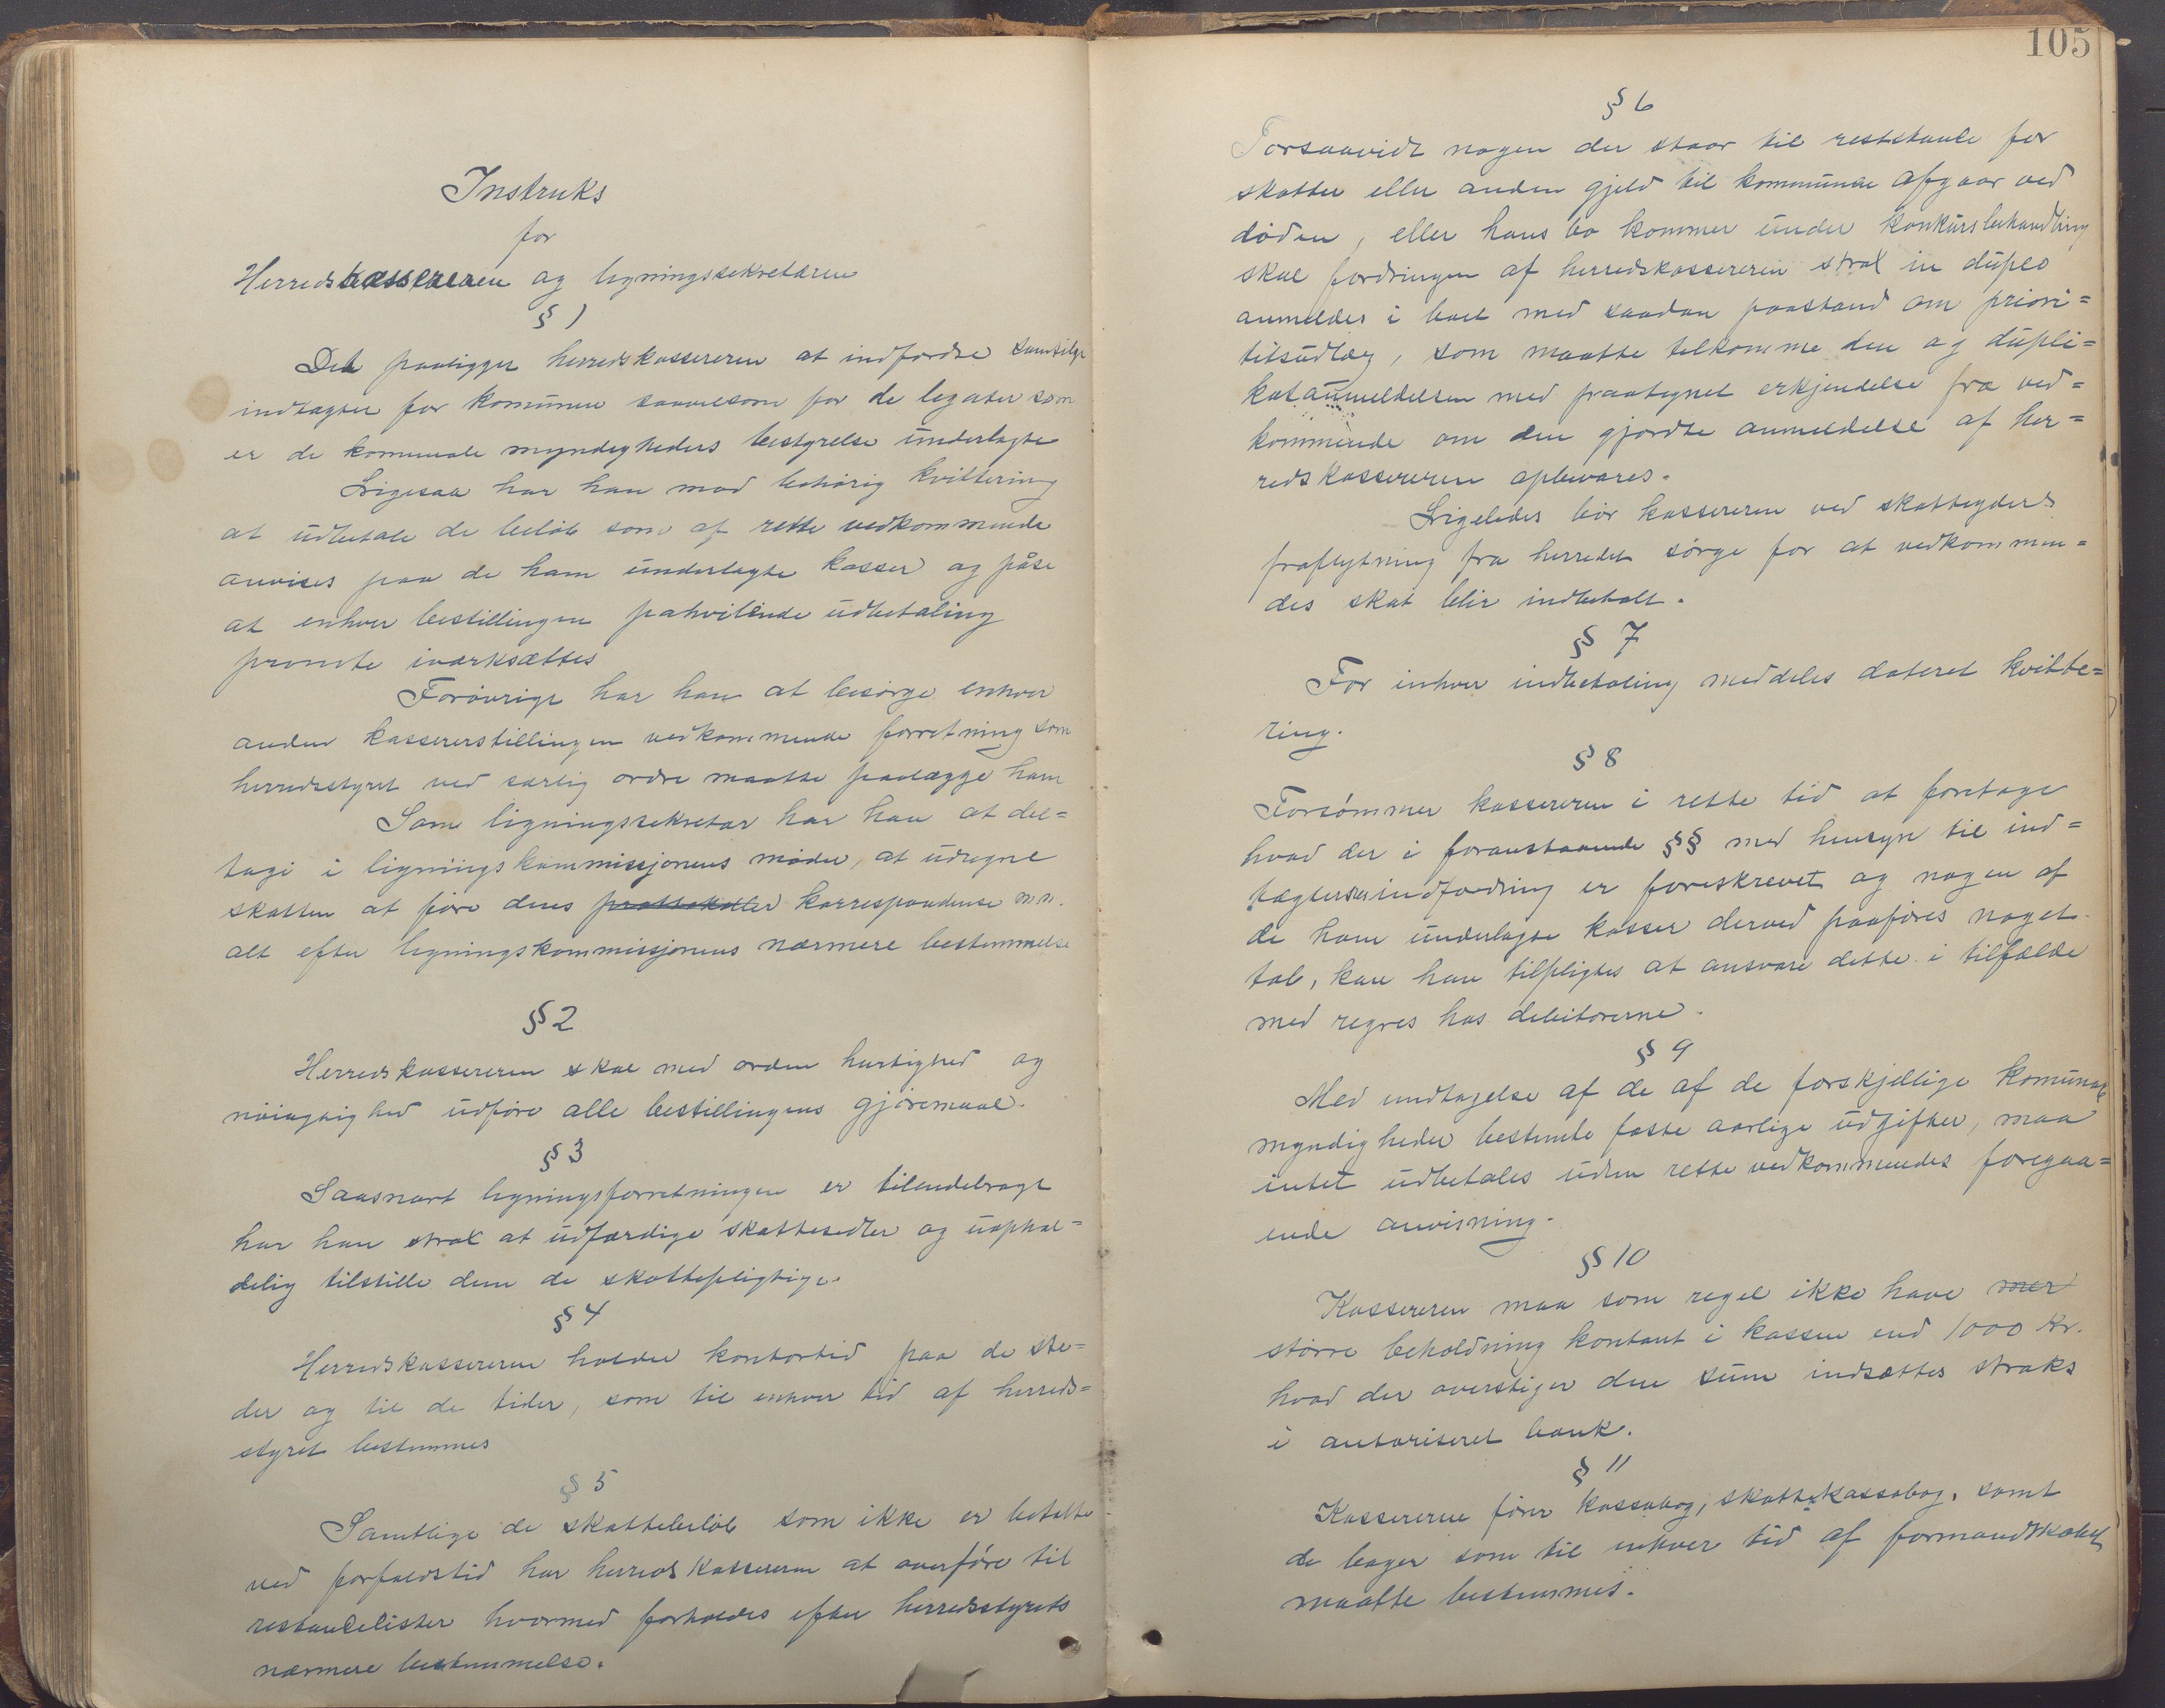 Instruks
for
Herredskassereren og ligningssekretæren
§ 1
Det paaligger herredskassereren at indfordre samtilge
indtægter for komunen saavelsom for de legater som
er de komunale myndigheders bestyrelse underlagte
Ligesaa har han mod behørig kvittering
at udbetale de beløb som af rette vedkommende
anvises paa de ham underlagte kasser og påse
at enhver bestillingen pahvilende udbetaling
promte iværksættes
Forøvrigt har han at besørge enhver
anden kassererstillingen vedkommende forretning som
herredsstyret ved særlig ordre maatte paalægge ham
Som ligningssekretær har han at del=
tage i ligningskommissjonens møder, at udregne
skatten at føre dens protokoller korrespondense m.m.
alt efter ligningskommissjonens nærmere bestemmelse
§ 2
Herredskassereren skal med orden hurtighed og
nøiagtighed udføre alle bestillingens gjøremaal.
§ 3
Saasnart ligningsforretningen er tilendebragt
har han strax at udfærdige skattesedler og uophol=
delig tilstille dem de skattepligtige.
§ 4
Herredskassereren holder kontortid paa de ste=
der og til de tider, som til enhver tid af herreds=
styret bestemmes
§ 5
Samtlige de skattebeløb som ikke er betalte
ved forfaldstid har herredskassereren at overføre til
restancelister hvormed forholdes efter herredsstyrets
nærmere bestemmelse.
105
§ 6
Forsaavidt nogen der staar til reststaule for
skatter eller anden gjeld til kommunen afgaar ved
døden, eller hans bo kommer under konkursbehandling
skal fordringen af herredskassereren strax in duplo
anmeldes i boet med saadan paastand om priori=
tetsudlæg, som maatte tilkomme den og dupli=
katanmeldelsen med paategnet erkjendelse fra ved=
kommende om den gjordte anmeldelse af her=
redskassereren opbevares.
Ligeledes bør kassereren ved skatteyders
fraflytning fra herredet sørge for at vedkommen=
des skat blir indbetalt.
§ 7
For inhver indbetaling meddeles dateret kvitte=
ring.
§ 8
Forsømmer kassereren i rette tid at foretage
hvad der i foranstaaende §§ med hensyn til ind=
tægternes indfordring er foreskrevet og nogen af
de ham underlagte kasser derved paaføres noget
tab, kan han tilpligtes at ansvare dette i tilfælde
med regres hos debitorerne.
§ 9
Med undtagelse af de af de forskjellige komunale
myndigheder bestemte faste aarlige udgifter, maa
intet udbetales uden rette vedkommendes foregaa=
ende anvisning.
§ 10
Kassereren maa som regel ikke have mer
større beholdning kontant i kassen end 1000 kr.
hvad der overstiger den sum indsættes straks
i autoriseret bank.
§ 11
Kassereren fører kassabog, skattekassabog, samt
de bøger som til enhver tid af formandskabet
maatte bestemmes.